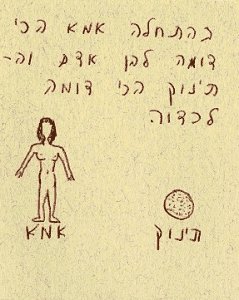 בהתחלה אמא הכי
דומה לבן אדם וה-
תינוק הכי דומה
לכדור.
אמא
תינוק